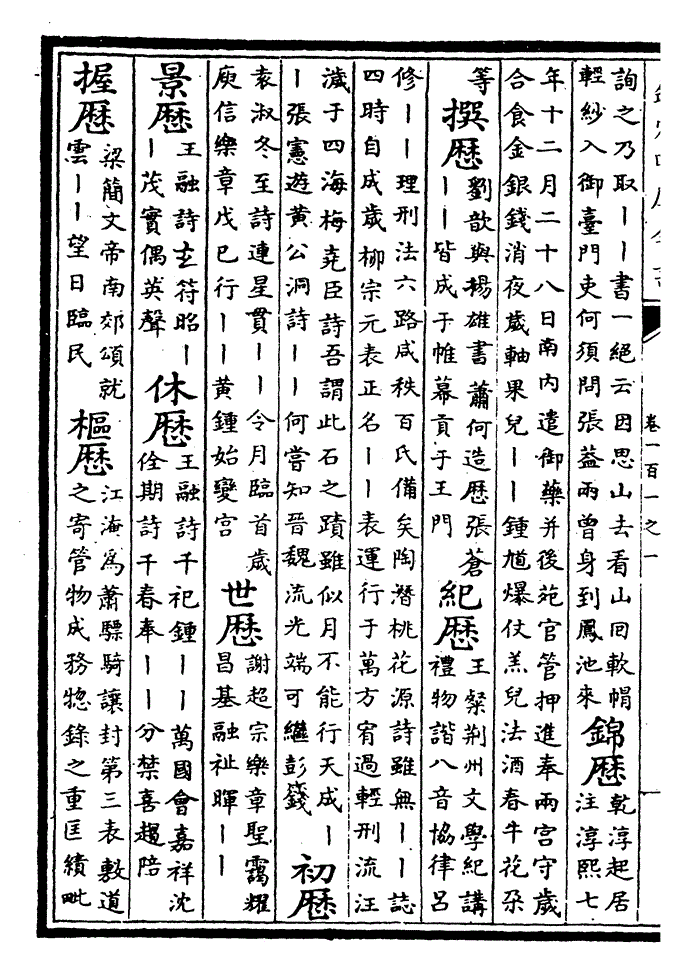 詢之乃取丨丨書一絕云因思山去看山回軟帽
輕紗入御臺門吏何須問張葢兩曾身到鳳池來
錦厯
乾淳起居
注淳熙七
年十二月二十八日南内遣御藥并後苑官管押進奉兩宫守歲
合食金銀錢消夜歲軸果兒丨丨鍾馗爆仗羔兒法酒春牛花朶
等
撰厯
劉歆與揚雄書蕭何造厯張蒼
丨丨皆成于帷幕貢于王門
紀厯
王粲荆州文學紀講
禮物諧八音協律吕
修丨丨理刑法六路咸秩百氏備矣陶潛桃花源詩雖無丨丨誌
四時自成歲柳宗元表正名丨丨表運行于萬方宥過輕刑流汪
濊于四海梅堯臣詩吾謂此石之蹟雖似月不能行天成丨
丨張憲遊黄公洞詩丨丨何嘗知晉魏流光端可繼彭籛
初厯
袁淑冬至詩連星貫丨丨令月臨首歲
庾信樂章戊已行丨丨黄鍾始變宫
世厯
謝超宗樂章聖靄耀
昌基融祉暉丨丨
景厯
王融詩玄符昭丨
丨茂實偶英聲
休厯
王融詩千祀鍾丨丨萬國會嘉祥沈
佺期詩千春奉丨丨分禁喜趨陪
握厯
梁簡文帝南郊頌就
雲丨丨望日臨民
樞厯
江淹為蕭驃騎讓封第三表敷道
之寄管物成務惣錄之重匡績毗
卷一百一之一